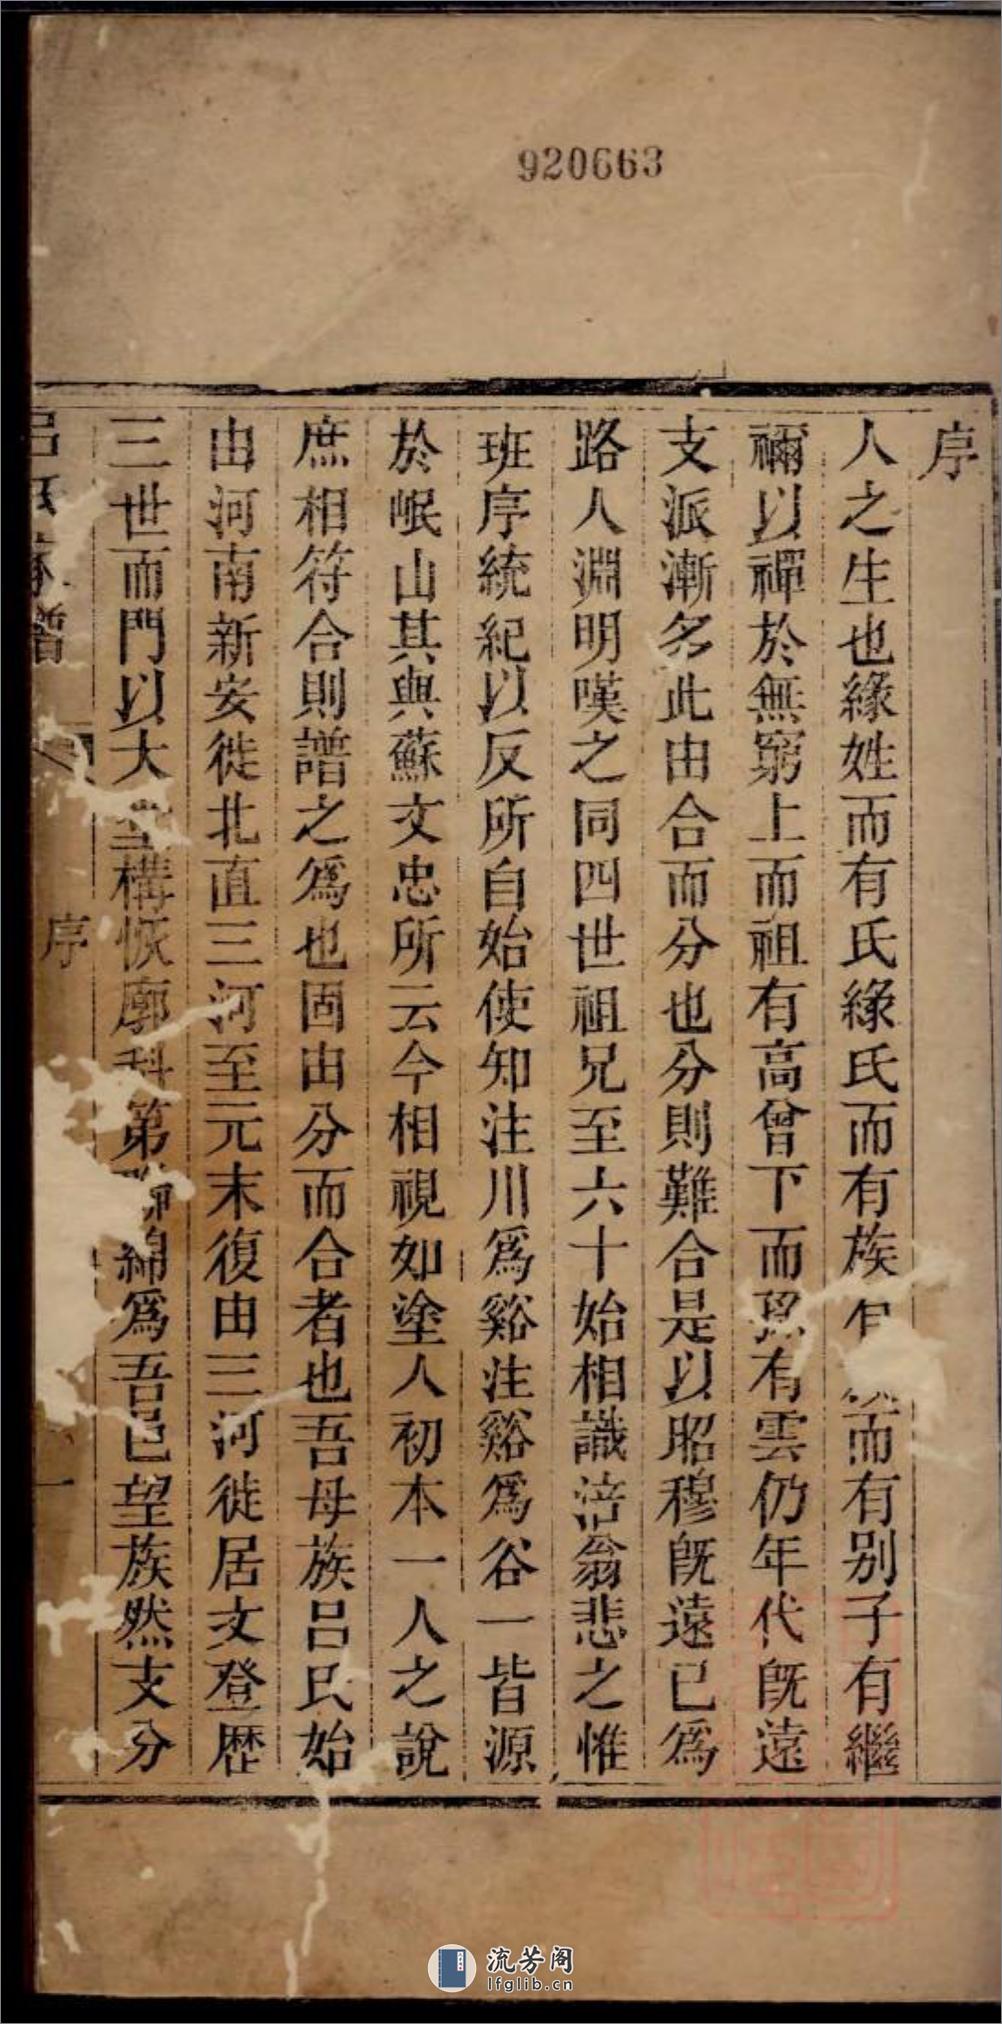 920663
序
人之生也緣姓而有氏緣氏而有族有而有别子有繼
禰以禪於無窮上而祖有高曾下而孫有雲仍年代旣遠
支派漸多此由合而分也分則難合是以昭穆旣遠已爲
路人淵明嘆之同四世祖兄至六十始相識涪翁悲之惟
班序統紀以反所自始使知注川爲谿注谿爲谷一皆源
於岷山其與蘇文忠所云今相視如塗人初本一人之說
庶相符合則譜之爲也固由分而合者也吾母族呂氏始
由河南新安徙北直三河至元末復由三河徙居文登歷
三世而門以大堂構恢廓科第聯綿爲吾邑望族然支分
呂氏家譜
序
一
流芳阁
lfglib.cn